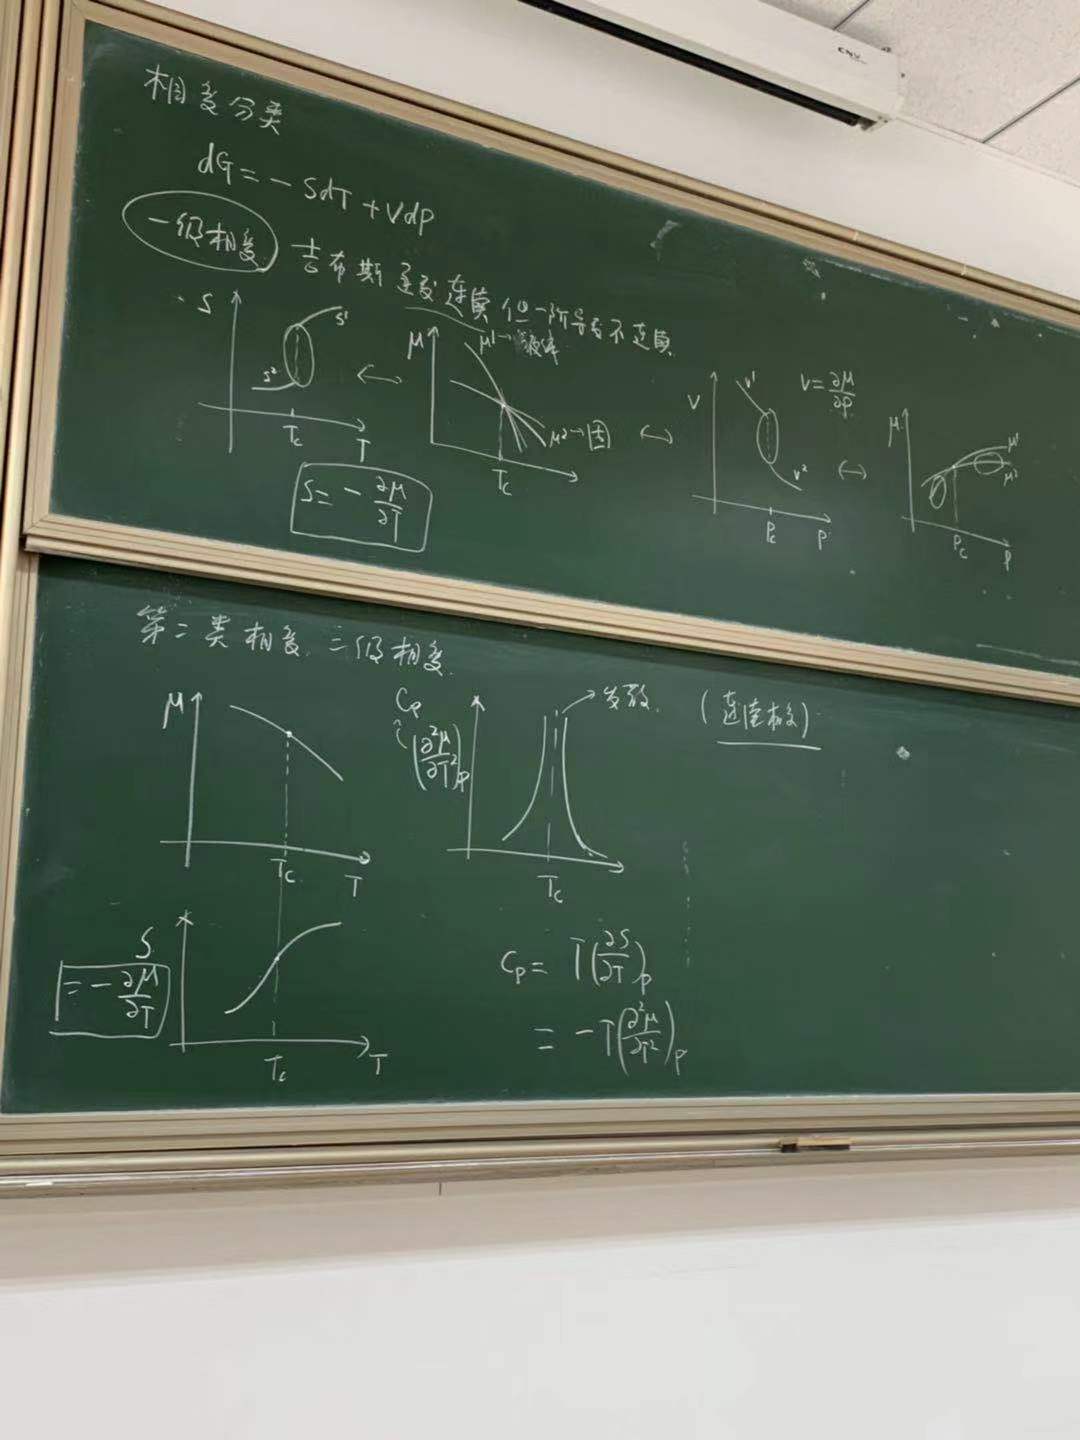 相变分类
dG = - SdT + VdP
一级相变 吉布斯函数连续但一阶导数不连续
S
S¹
S²
Tc
T
S = - ∂μ/∂T
μ
μ¹→液体
μ²→固
Tc
V
V¹
V²
Pc
P
V = ∂μ/∂P
μ
μ¹
μ²
Pc
P
第二类相变. 二级相变.
μ
Tc
T
CP
(∂²μ/∂T²)P
→发散.
Tc
(连续相变)
S
= - ∂μ/∂T
Tc
T
CP = T(∂S/∂T)P
= -T(∂²μ/∂T²)P